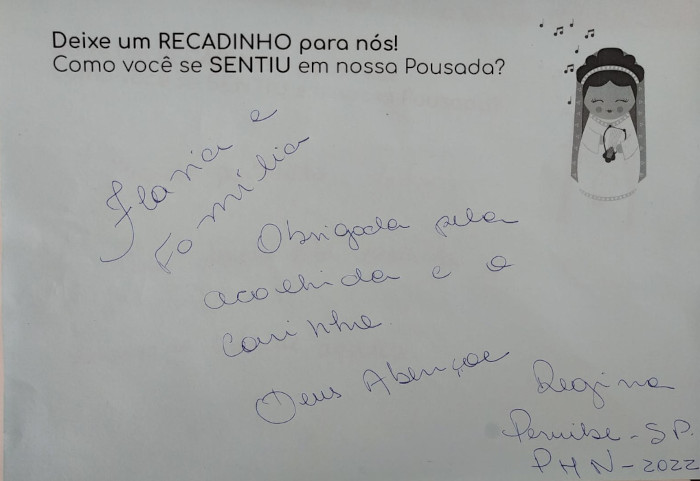 Deixe um RECADINHO para nós!
Como você se SENTIU em nossa Pousada?
Flavia e
Família
Obrigada pela
acolhida e o
carinho.
Deus Abençoe
Regina
Peruibe - SP.
PHN - 2022